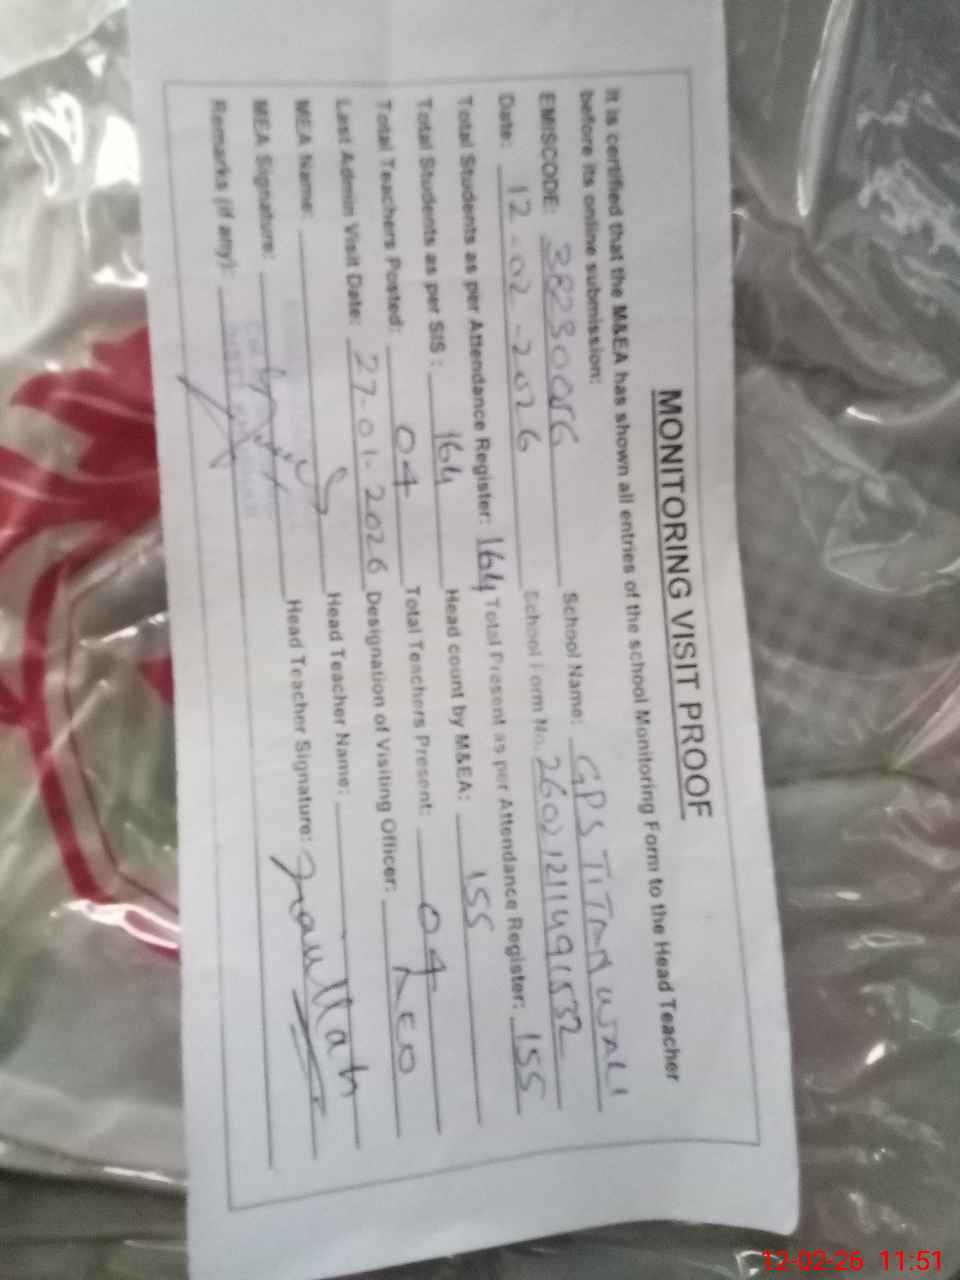 MONITORING VISIT PROOF
It is certified that the M&EA has shown all entries of the school Monitoring Form to the Head Teacher
before its online submission:
EMISCODE: School Name: GPS
Date: 12-02-2026 School Form No.
Total Students as per Attendance Register: 164 Total Present as per Attendance Register: 155
Total Students as per SIS: 164 Head count by M&EA: 155
Total Teachers Posted: 04 Total Teachers Present: 04
Last Admin Visit Date: 27-01-2026 Designation of Visiting Officer: AEO
MEA Name: Head Teacher Name:
MEA Signature: Head Teacher Signature:
Remarks (if any):
12-02-26 11:51